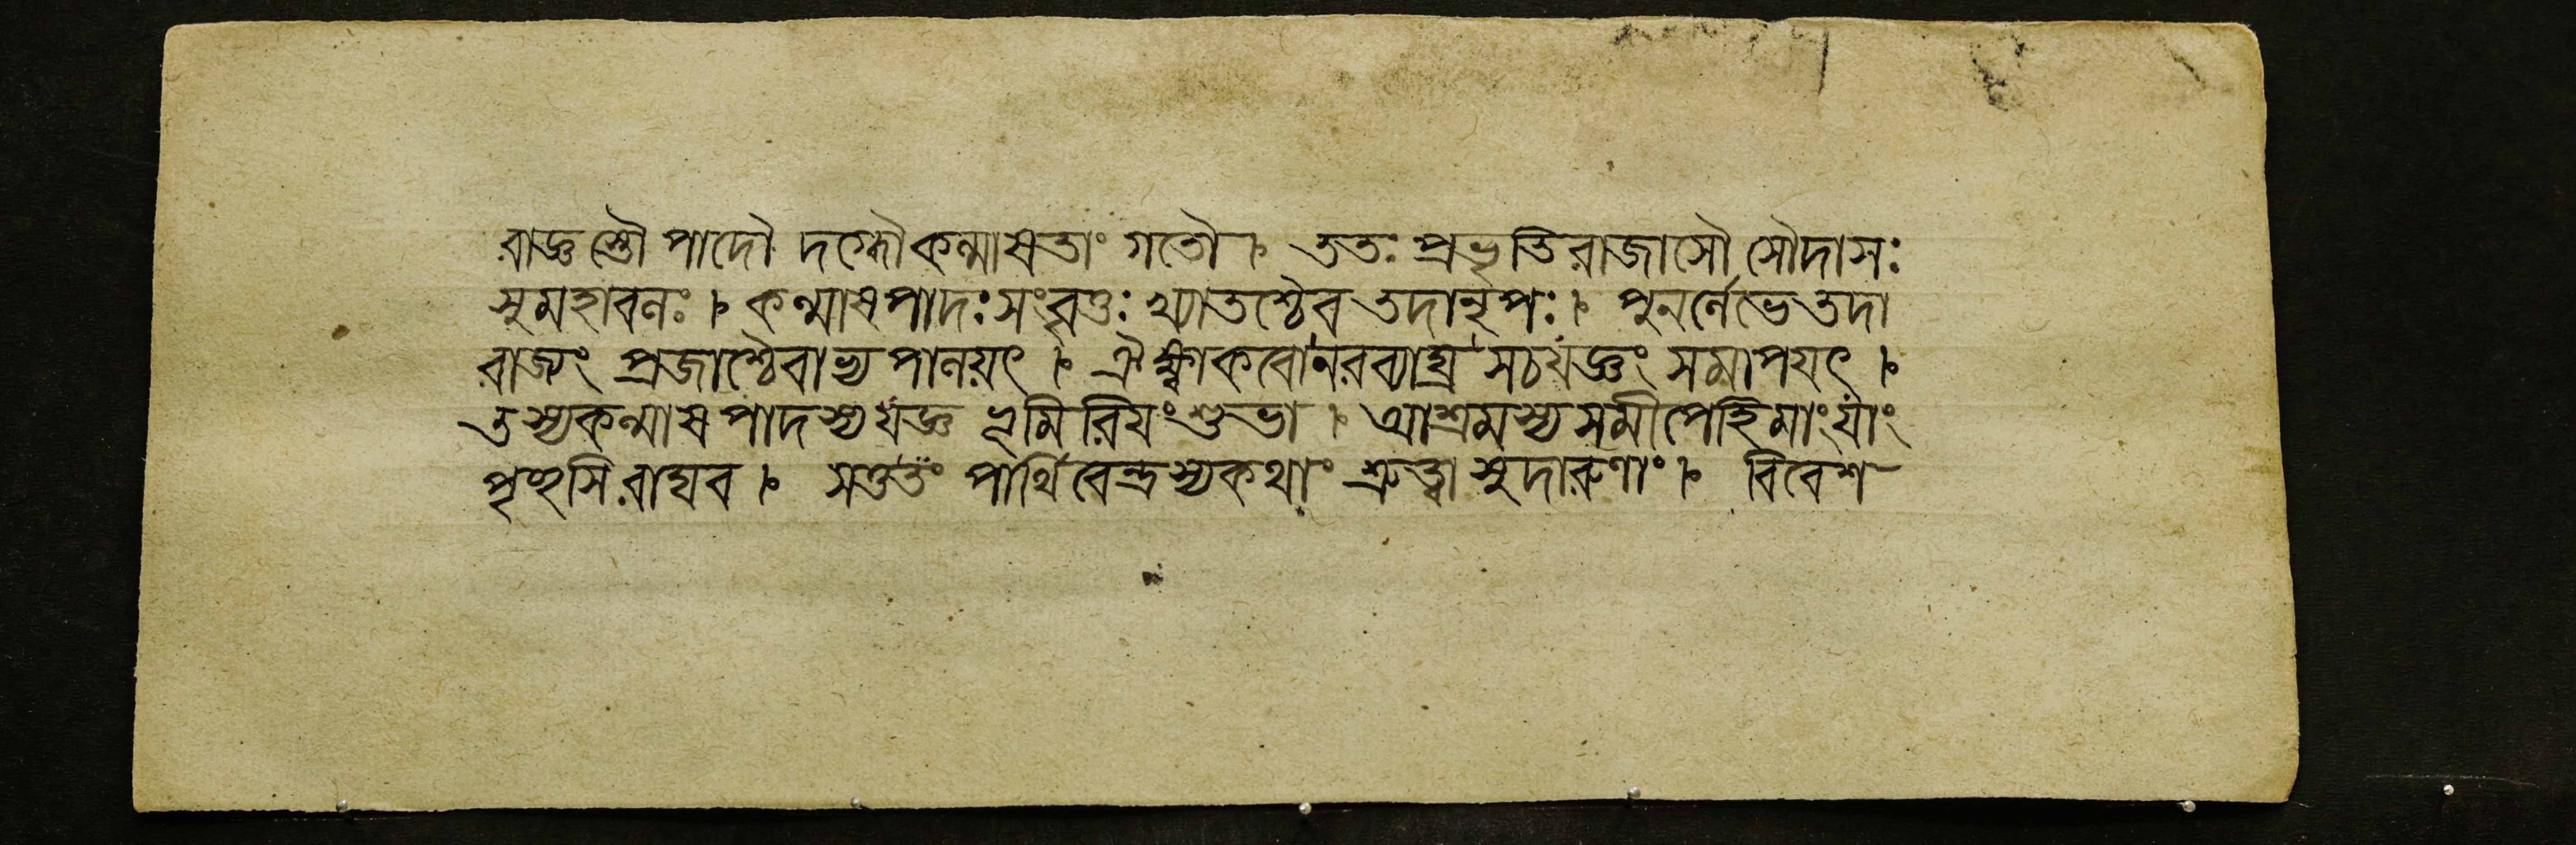 রাজ্ঞস্তৌ পাদৌ দগ্ধৌ কল্মাষতাং গতৌ । ততঃ প্রভৃতি রাজাসৌ সৌদাসঃ
সুমহাবলঃ । কল্মাষপাদঃ সংবৃত্তঃ খ্যাতশ্চৈব তদা নৃপঃ । পুনর্লেভে তদা
রাজ্যং প্রজাশ্চৈবাভ্যপালয়ৎ । ঐক্ষ্বাকবো নরব্যাঘ্র স চ যজ্ঞং সমাপয়ৎ ।
তস্য কল্মাষপাদস্য যজ্ঞভূমিরিয়ং শুভা । আশ্রমস্য সমীপে হি মাং যাং
পৃচ্ছসি রাঘব । স তু তং পার্থিবেন্দ্রস্য কথাং শ্রুত্বা সুদারুণাং । বিবেশ